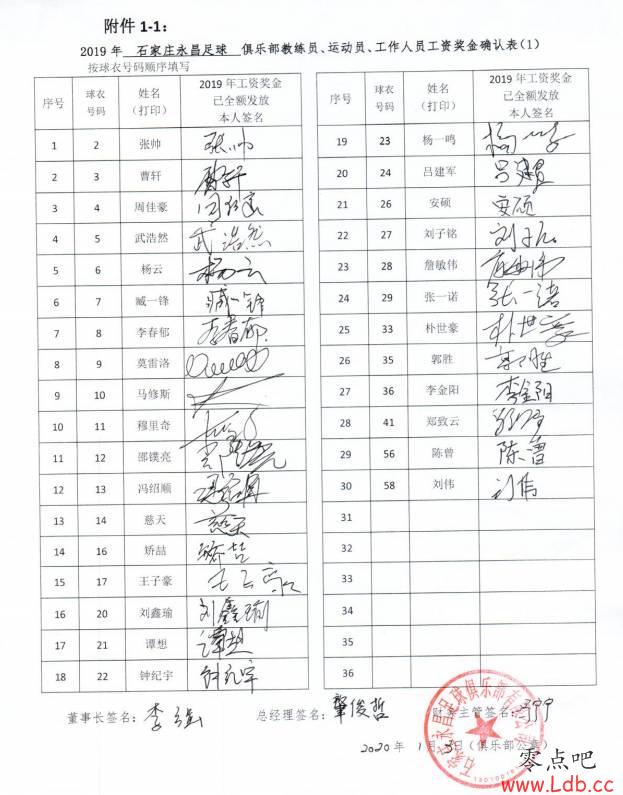 附件 1-1:
2019 年 石家庄永昌足球 俱乐部教练员、运动员、工作人员工资奖金确认表(1)
按球衣号码顺序填写
序号 球衣号码 姓名(打印) 2019 年工资奖金已全额发放本人签名
1 2 张帅 张帅
2 3 曹轩 曹轩
3 4 周佳豪 周佳豪
4 5 武浩然 武浩然
5 6 杨云 杨云
6 7 臧一锋 臧一锋
7 8 李春郁 李春郁
8 9 莫雷洛
9 10 马修斯
10 11 穆里奇
11 12 邵镤亮
12 13 冯绍顺 冯绍顺
13 14 慈天 慈天
14 16 矫喆 矫喆
15 17 王子豪 王子豪
16 20 刘鑫瑜 刘鑫瑜
17 21 谭想 谭想
18 22 钟纪宇 钟纪宇
序号 球衣号码 姓名(打印) 2019 年工资奖金已全额发放本人签名
19 23 杨一鸣 杨一鸣
20 24 吕建军 吕建军
21 26 安硕 安硕
22 27 刘子铭 刘子铭
23 28 詹敏伟
24 29 张一诺 张一诺
25 33 朴世豪 朴世豪
26 35 郭胜 郭胜
27 36 李金阳 李金阳
28 41 郑致云
29 56 陈曾 陈曾
30 58 刘伟 刘伟
31
32
33
34
35
36
董事长签名: 李强 总经理签名: 肇俊哲 财务主管签名:
2020 年 1月 5日(俱乐部公章)
石家庄永昌足球俱乐部有限公司
零点吧
www.Ldb.cc